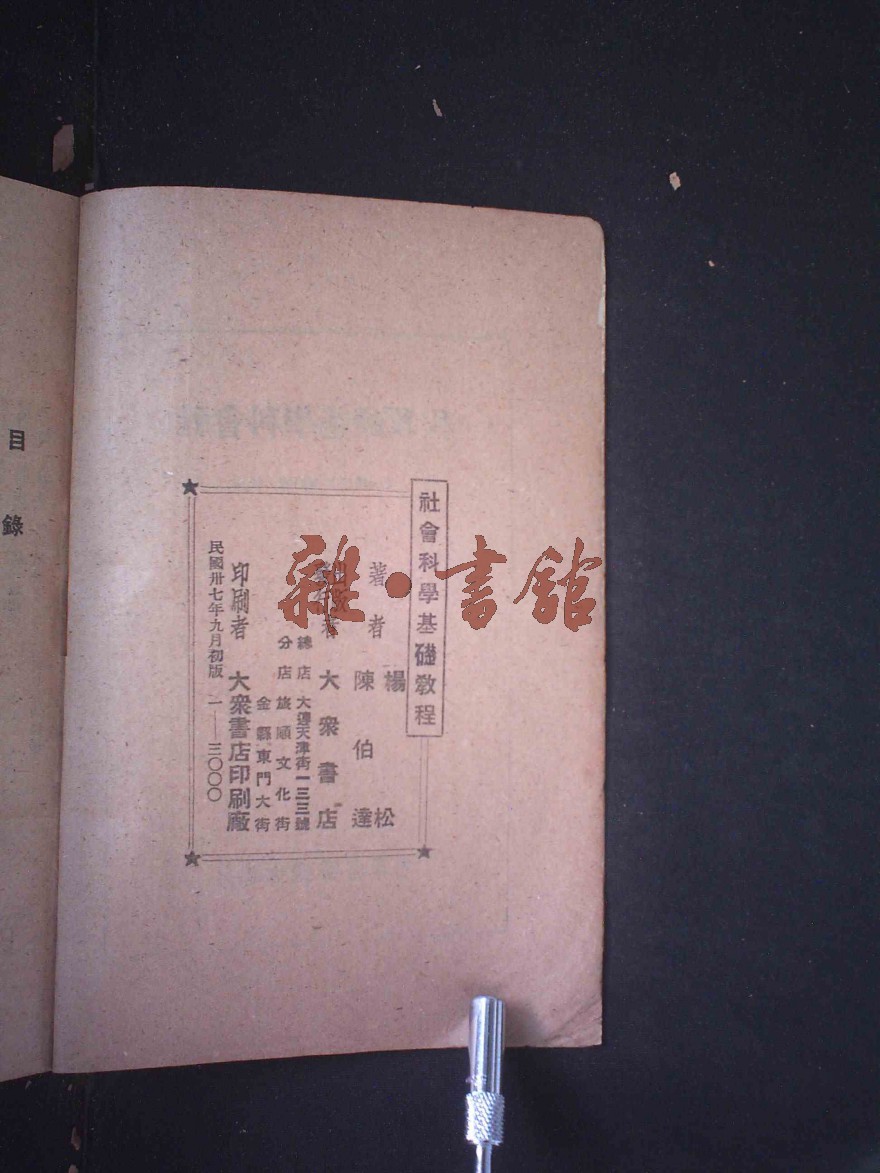 社會科學基礎教程
著者 楊松
陳伯達
者 大衆書店
總店 大連天津街一三三號
分店 旅順文化街
金縣東門大街
印刷者 大衆書店印刷廠
民國卅七年九月初版 1—3000
目錄
雜·書館